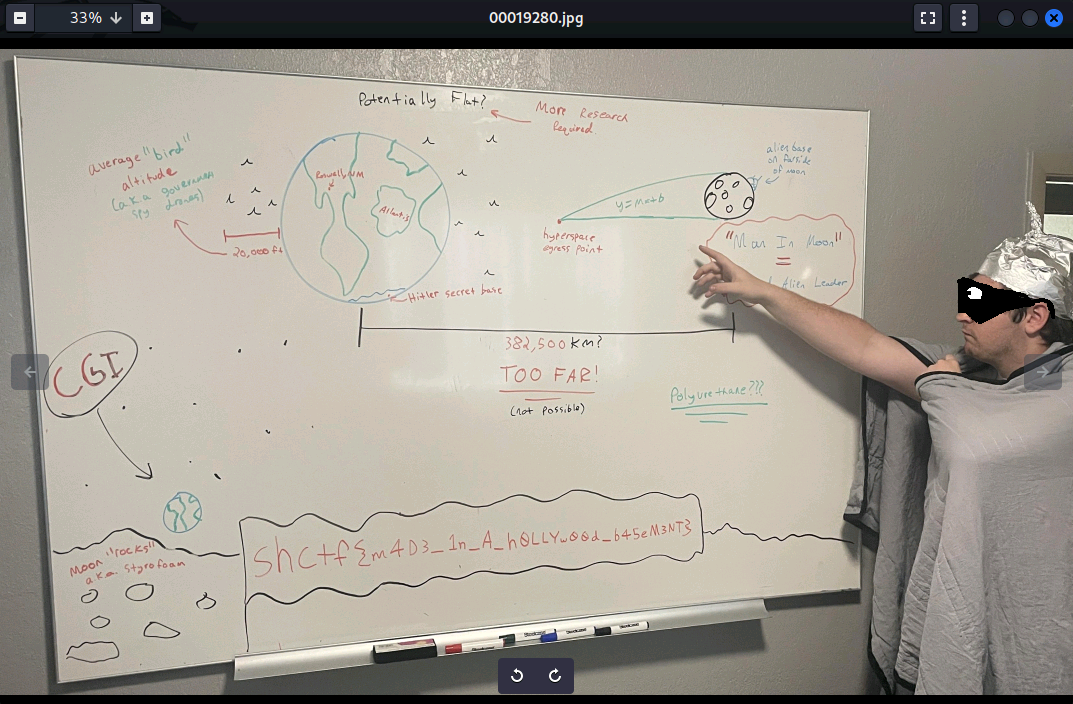 33%
00019280.jpg
Potentially Flat?
More Research
Required
average "bird"
altitude
(a.k.a government
spy drones)
20,000 ft
Roswell, NM
Atlantis
Hitler secret base
alien base
on farside
of moon
y=mx+b
hyperspace
egress point
"Man In Moon"
=
Alien Leader
382,500 km?
TOO FAR!
(not possible)
Polyurethane???
CGI
Moon "rocks"
a.k.a. Styrofoam
shctf{m4D3_1n_A_h0LLYw00d_b45eM3NT}